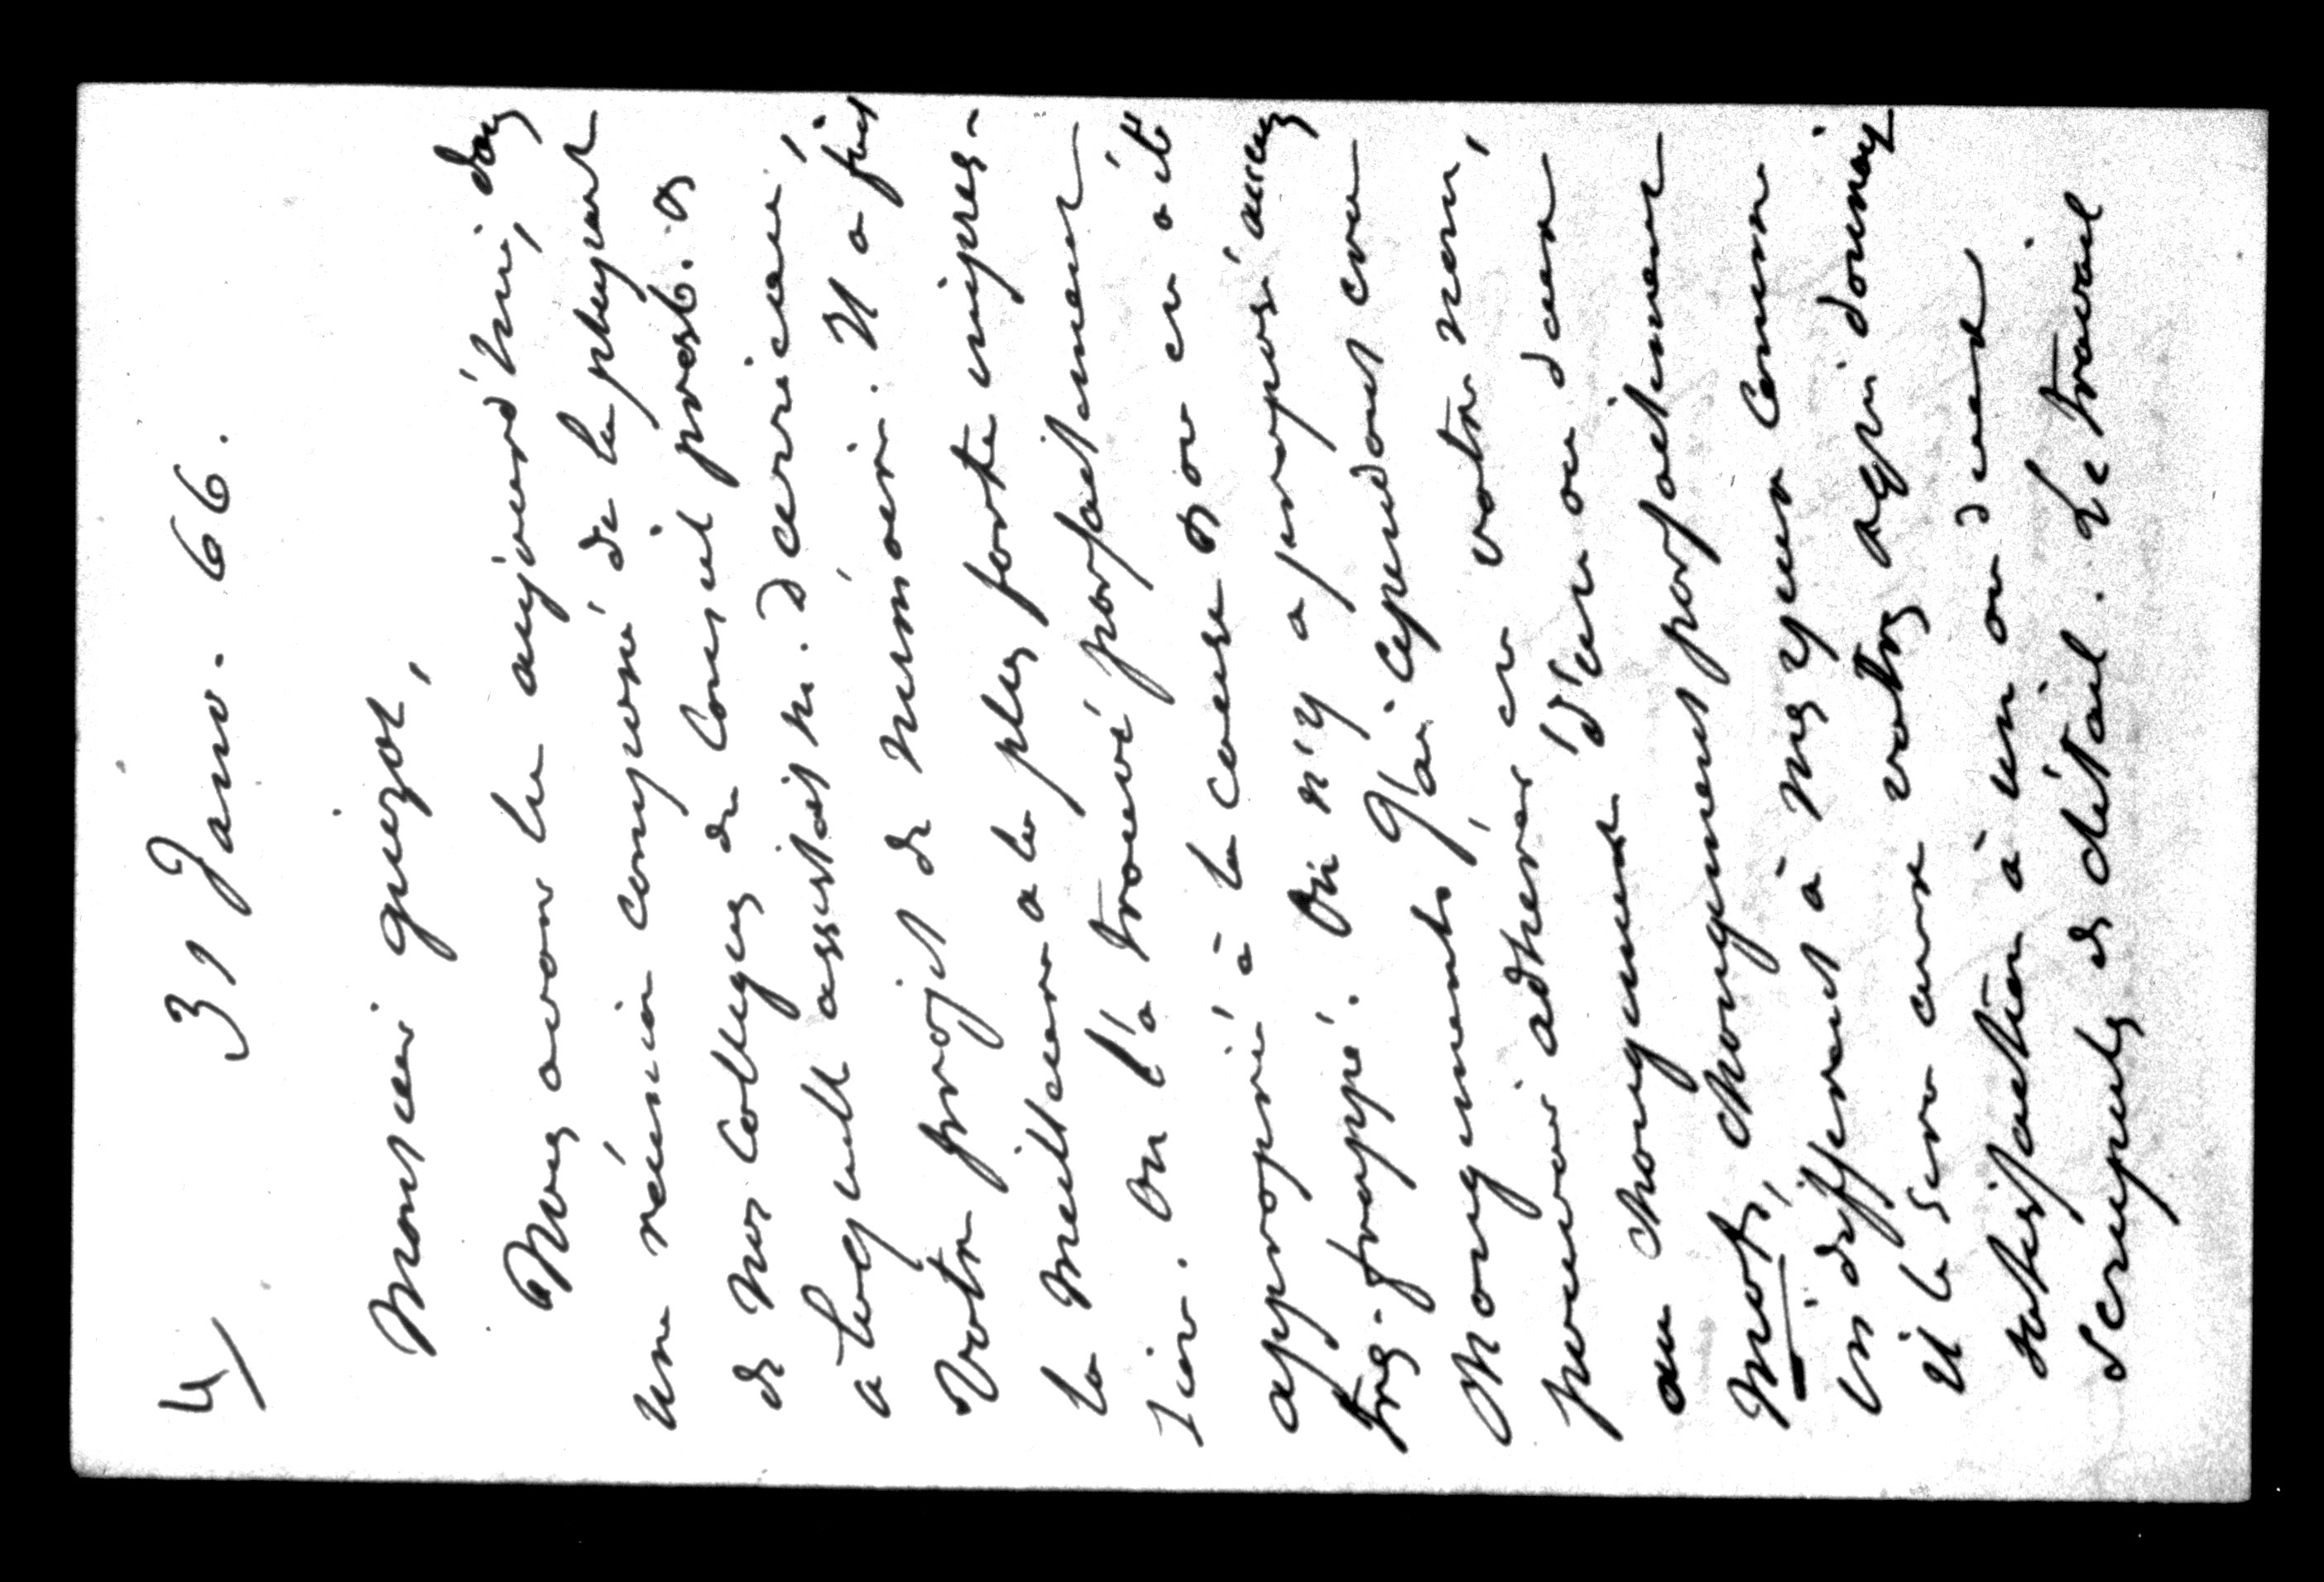 4/ 31 Janv. 66.
Monsieur Guizot,
Nous avons lu aujourd'hui, dans
une réunion composée de la plupart
de nos collègues du Conseil presb. et
à laquelle assistait M.
votre projet de mémoire. Il a fait
la meilleure et la plus forte impres-
sion. On l'a trouvé parfaitement
approprié à la cause et on en a été
très-frappé. On n'y a proposé aucuns
changements, J'ai cependant cru
pouvoir adhérer en votre nom,
au changement d'un ou deux
mots, changement parfaitement
indifférent à mes yeux comme
il le sera aux vôtres et qui donnait
satisfaction à un ou deux
scrupules de détail. Le travail